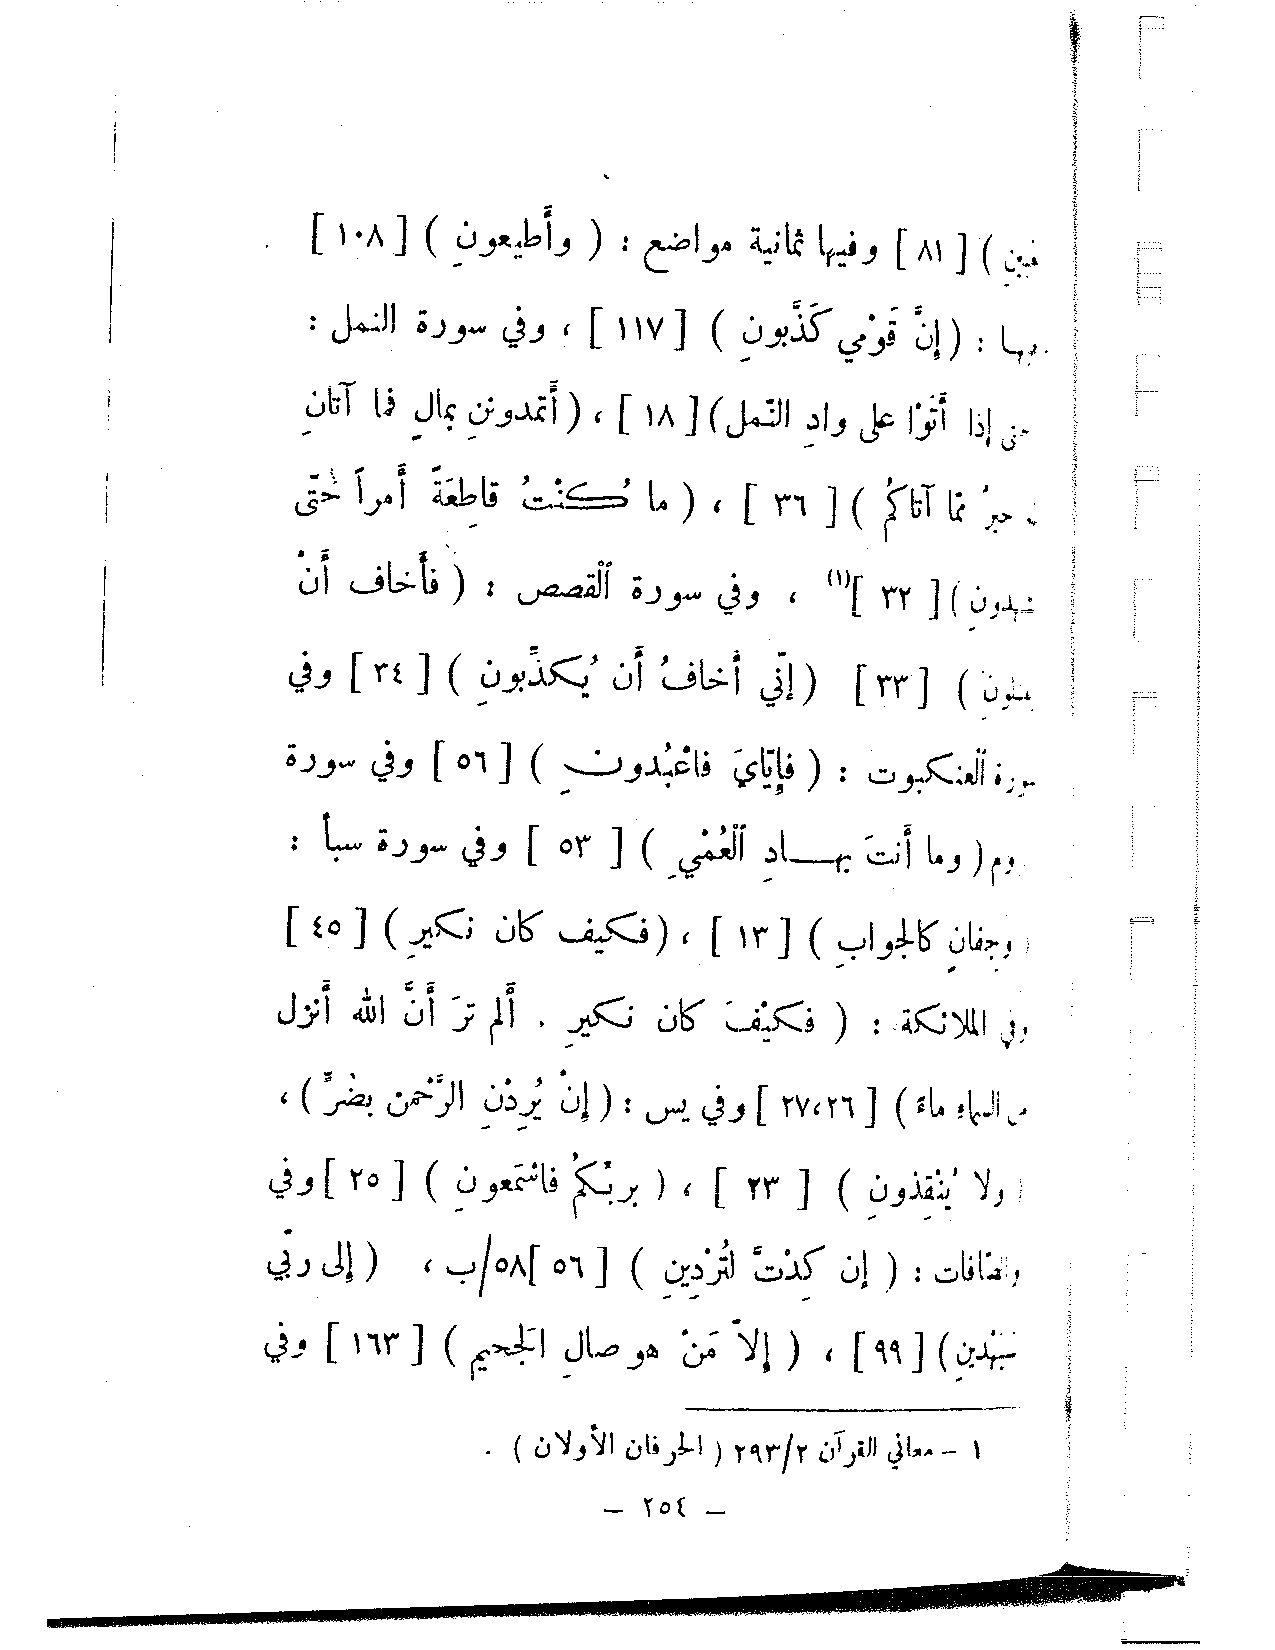 [ ٨١ ] وفيها ثمانية مواضع : ( وأَطيعونِ ) [ ١٠٨ ]
: (إنَّ قَوْمي كَذَّبونِ ) [ ١١٧ ] ، وفي سورة النمل :
إذا أَتَوْا على وادِ النّمل)[ ١٨ ] ، (أَتمدونَنِ بمالٍ فما آتانِ
مّا آتاكُم )[ ٣٦ ] ، ( ما كُنْتُ قاطِعَةً أَمراً حَتّى
[ ٣٢ ](١) ، وفي سورة القصص : ( فأَخاف أَنْ
[ ٣٣ ] (إنّي أَخافُ أَن يُكذِّبونِ ) [ ٣٤ ] وفي
العنكبوت : ( فإيّايَ فاعْبُدونِ ) [ ٥٦ ] وفي سورة
( وما أَنتَ بهادِ العُمْيِ ) [ ٥٣ ] وفي سورة سبأ :
وجِفانٍ كالجوابِ ) [ ١٣ ] ، (فكيف كان نكيرِ ) [ ٤٥ ]
وفي الملائكة : ( فكيْفَ كان نكيرِ . أَلم ترَ أَنَّ الله أَنزل
السماءِ ماءً ) [ ٢٧،٢٦ ] وفي يس : (إنْ يُرِدْنِ الرَّحْمن بضُرٍّ ) ،
ولا يُنْقِذونِ ) [ ٢٣ ] ، ( بربّكُم فاسْمَعونِ ) [ ٢٥ ] وفي
والصّافات : ( إن كِدْتَّ لتُرْدِينِ ) [ ٥٦ ]٥٨/ب ، ( إلى ربّي
سَيَهْدينِ )[ ٩٩ ] ، ( إلاّ مَنْ هو صالِ الجَحيم ) [ ١٦٣ ] وفي
١ - معاني القرآن ٢٩٣/٢ ( الحرفان الأولان ) .
— ٢٥٤ —